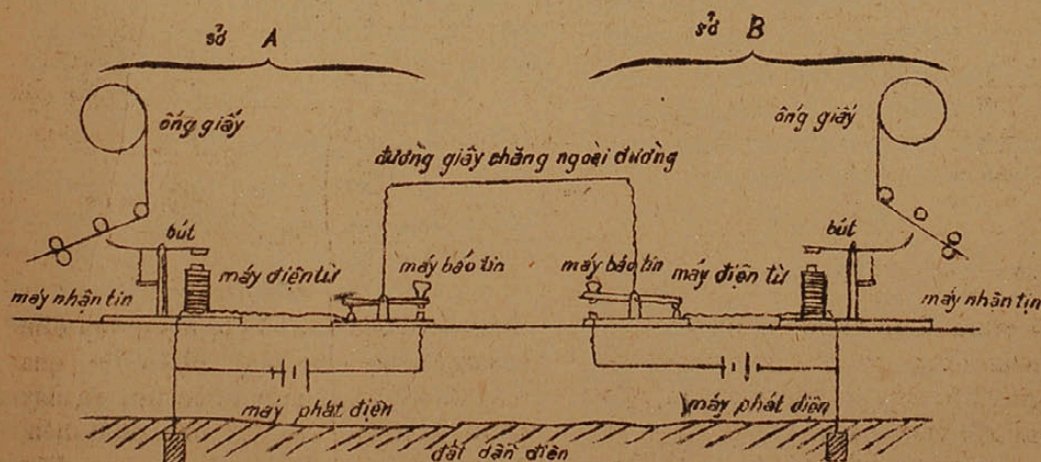 sở A
sở B
ống giấy
ống giấy
đường giây chăng ngoài đường
bút
bút
máy điện từ
máy báo tin
máy báo tin
máy điện từ
máy nhận tin
máy nhận tin
máy phát điện
máy phát điện
đất dẫn điện